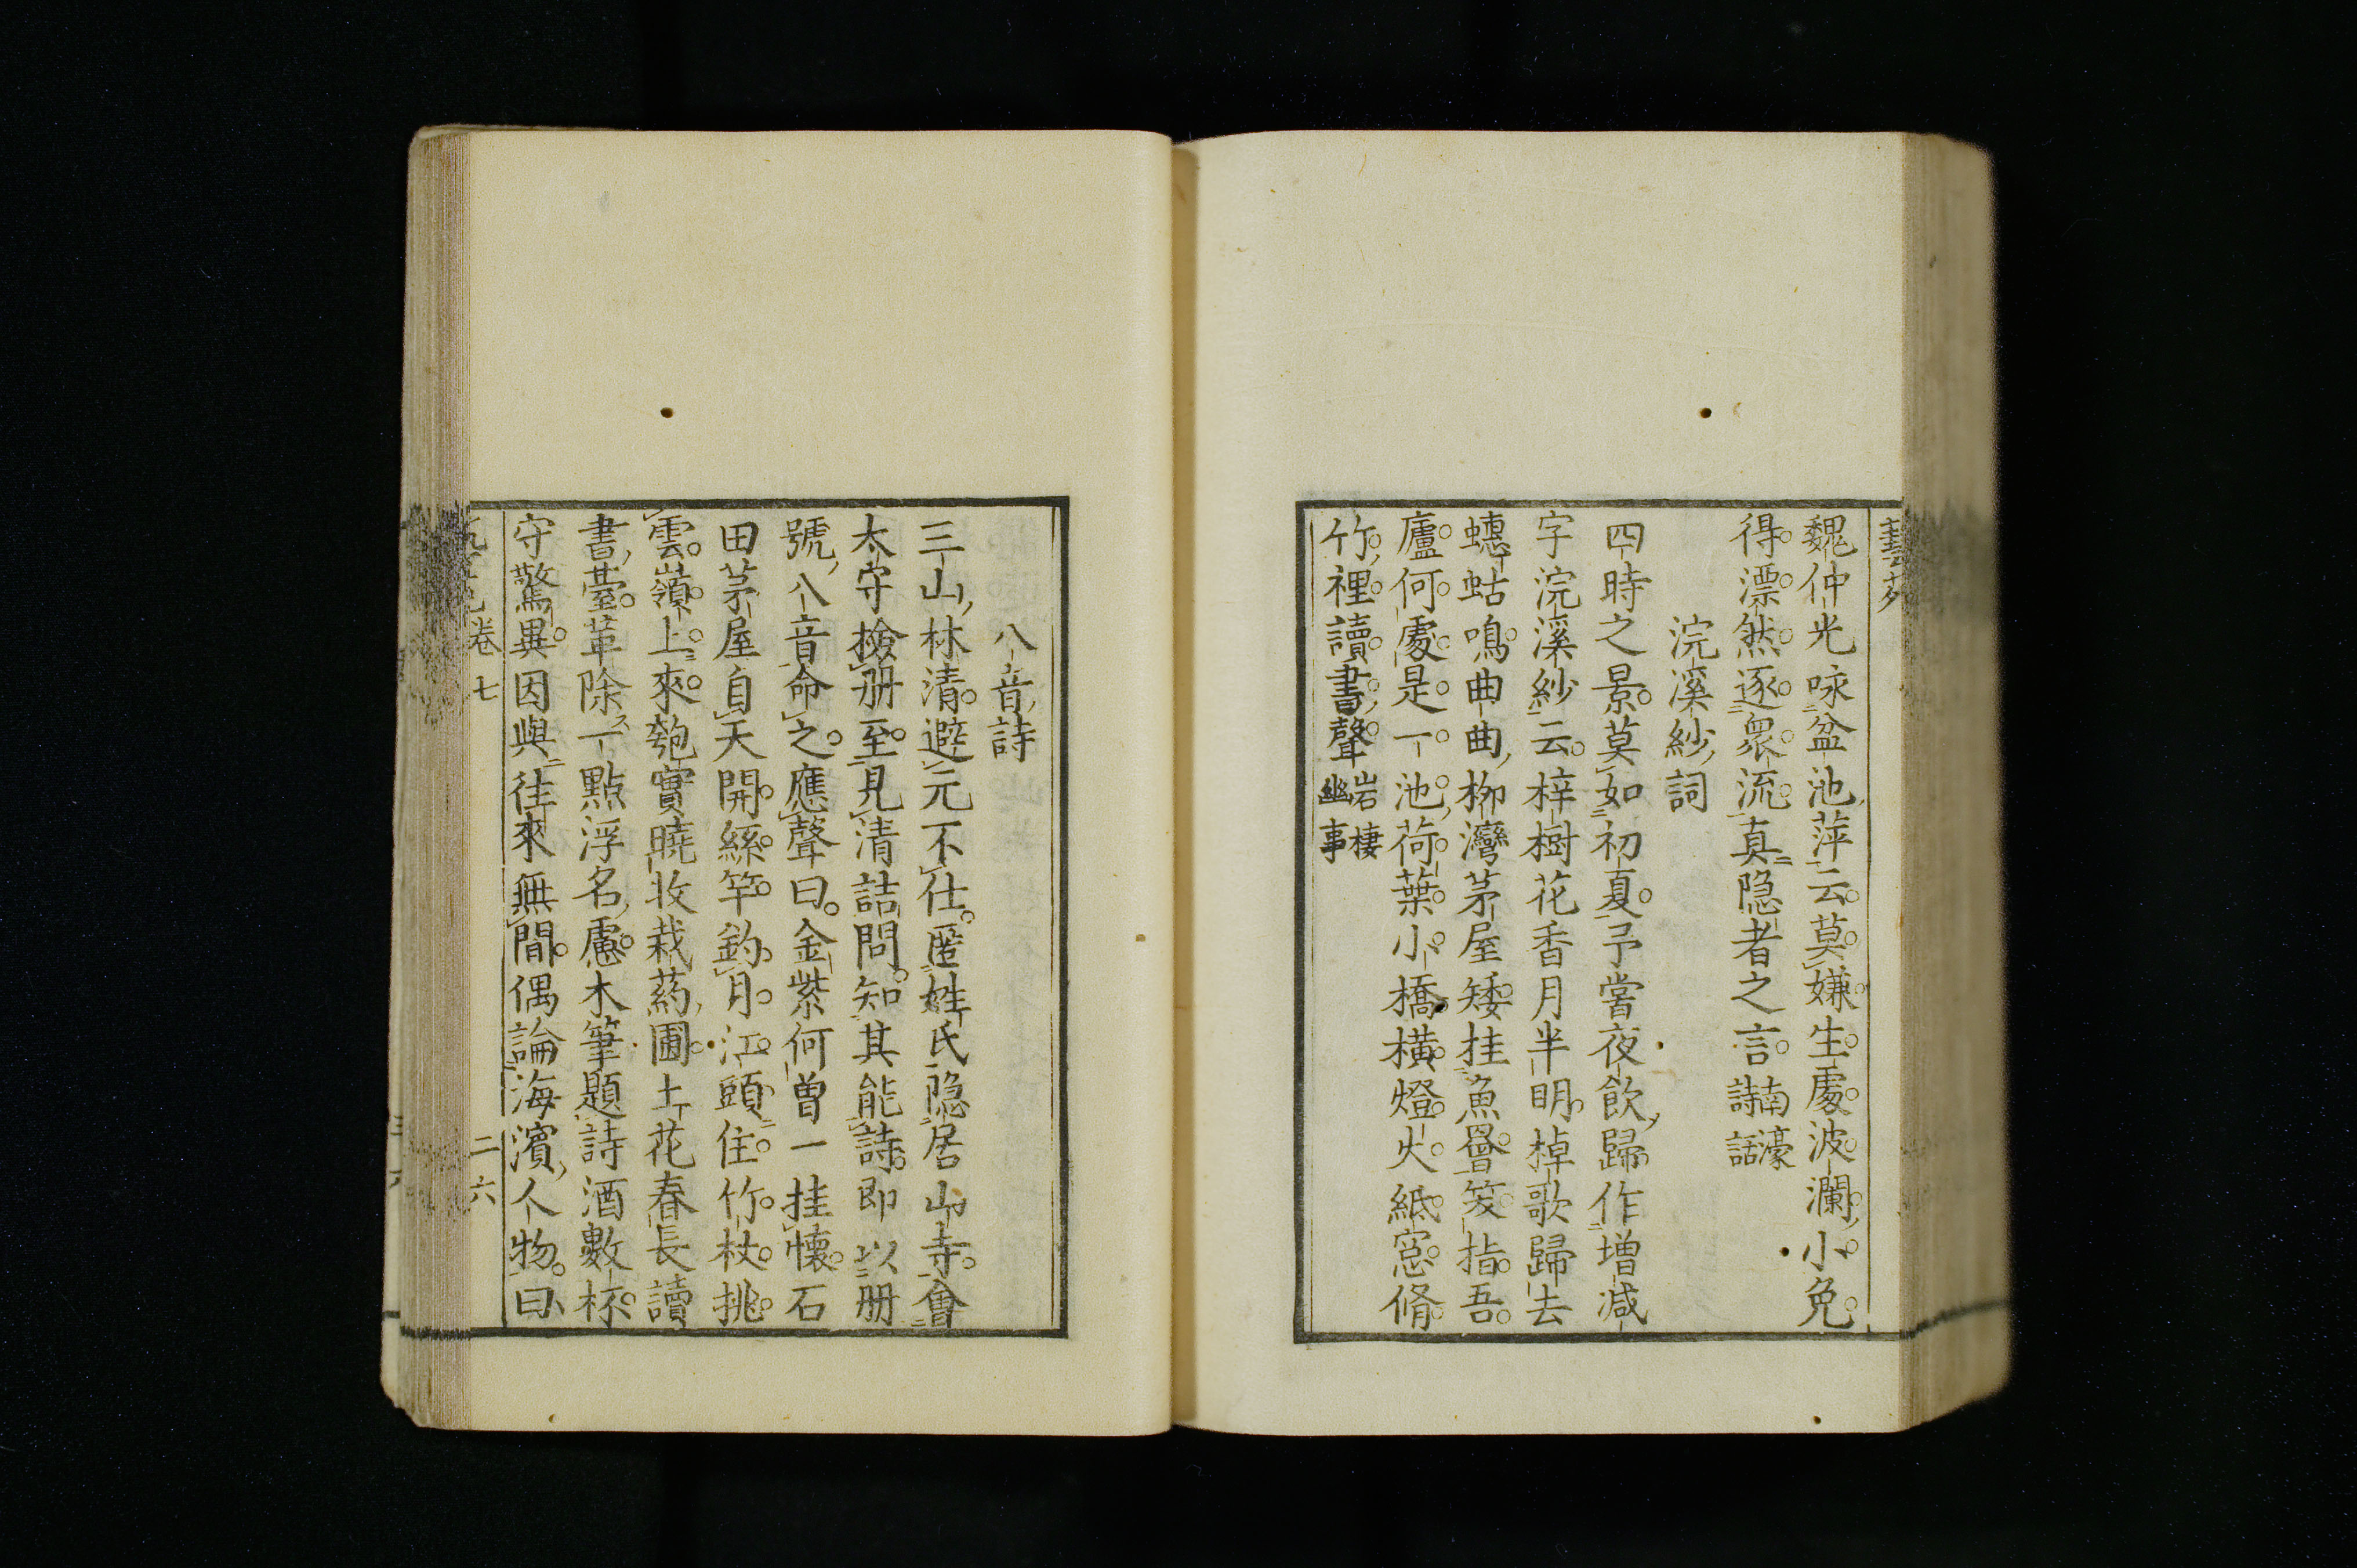 魏仲光咏盆池萍云莫嫌生處波瀾小免
得漂然逐衆流真隐者之言南濠詩話
浣溪紗詞
四時之景莫如初夏予嘗夜飲歸作增减
字浣溪紗云梓樹花香月半明棹歌歸去
蟪蛄鳴曲曲柳灣茅屋矮挂魚罾笑指吾
廬何處是一池荷葉小橋橫燈火紙窓脩
竹裡讀書聲岩棲幽事
八音詩
三山林清避元不仕匿姓氏隐居山寺會
太守撿册至見清詰問知其能詩即以册
號八音命之應聲曰金紫何曾一挂懷石
田茅屋自天開絲竿釣月江頭住竹杖挑
雲嶺上來匏實曉收栽葯圃土花春長讀
書臺革除一點浮名慮木筆題詩酒數杯
守驚異因與往來無間偶論海濱人物曰
卷七
二六